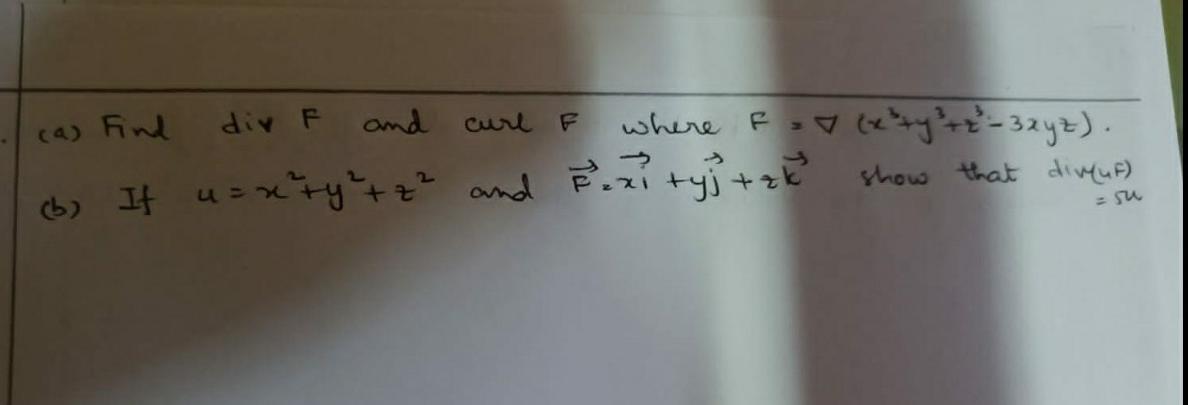 (a) Find div F and curl F where F = ∇ (x³+y³+z³-3xyz).
(b) If u = x²+y²+z² and F⃗ = xi⃗ + yj⃗ + zk⃗ show that div(uF)
= 5u